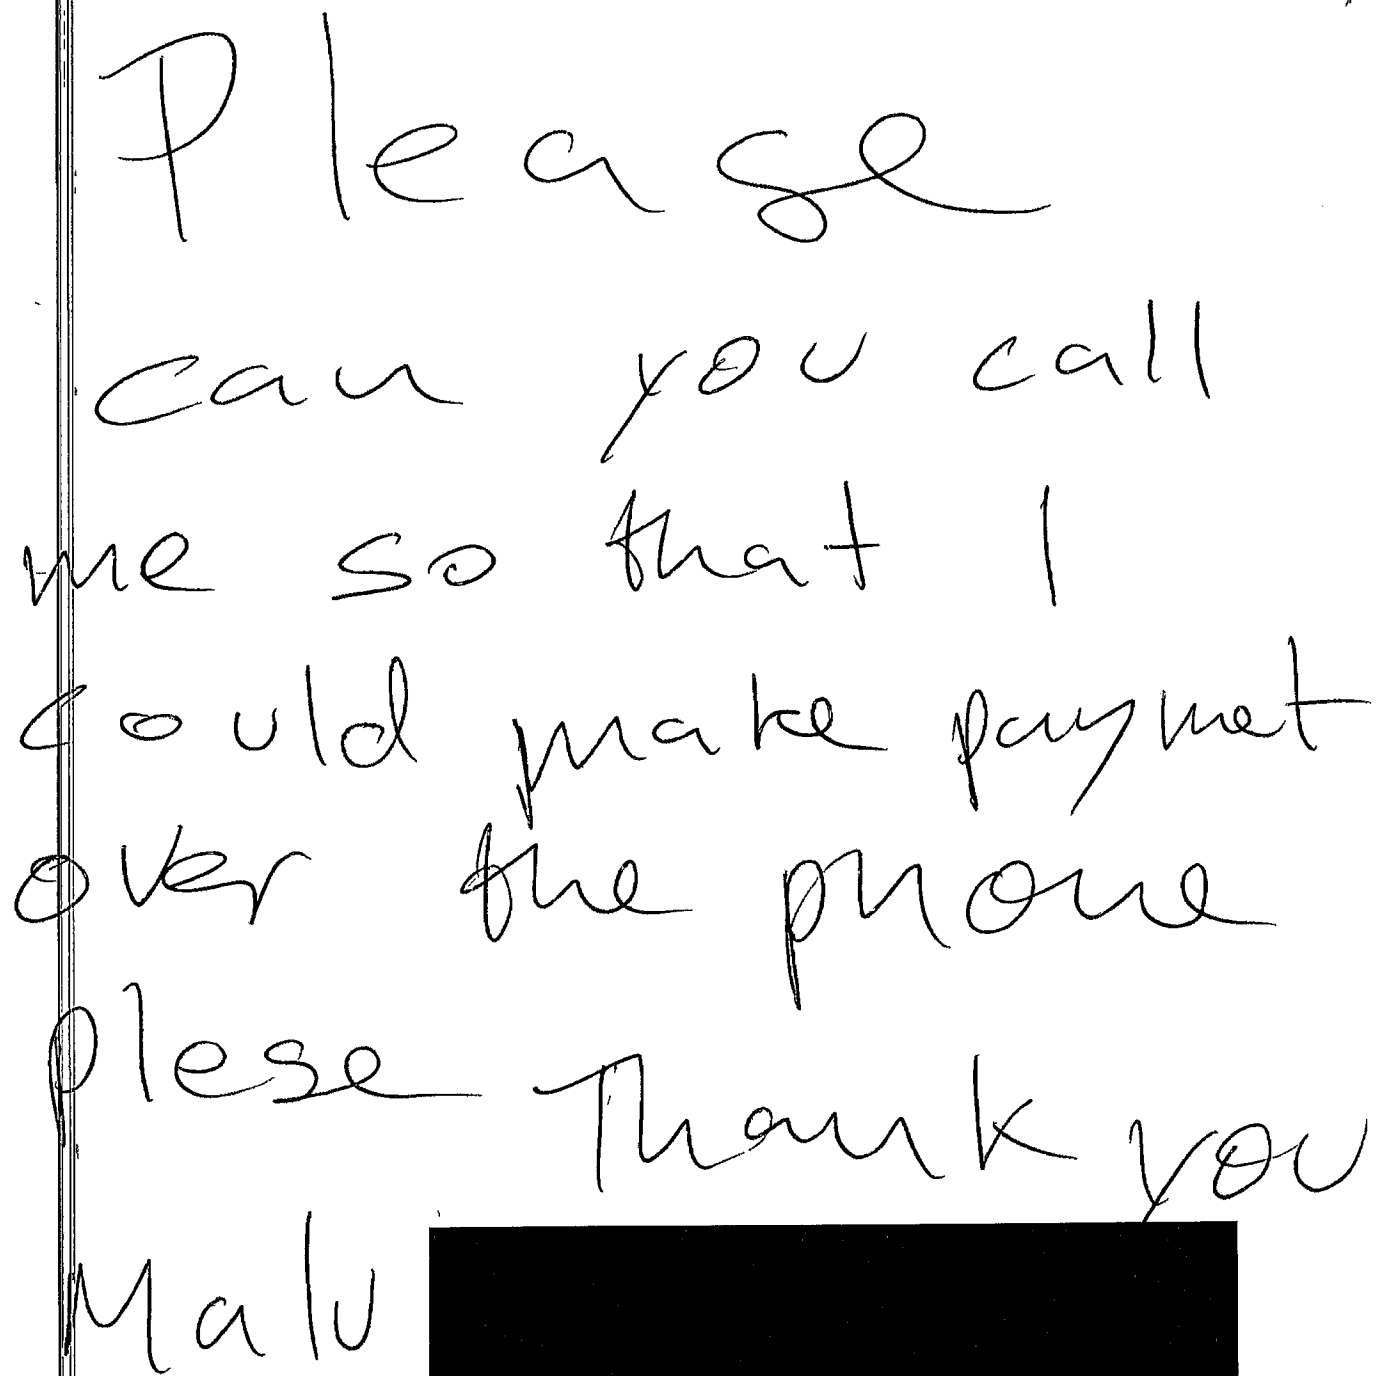 Please
can you call
me so that I
could make paymet
over the phone
plese Thank you
Malu